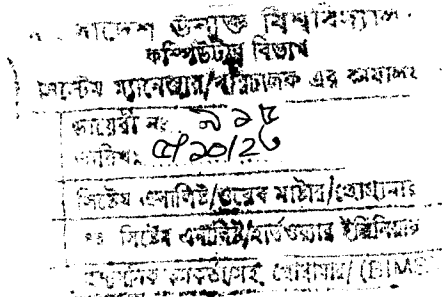 বাংলাদেশ উন্মুক্ত বিশ্ববিদ্যালয়
কম্পিউটার বিভাগ
সিস্টেম ম্যানেজার/পরিচালক এর কার্যালয়
ডায়েরী নং ৯২৫
তারিখঃ ৫/১০/২৩
সিস্টেম এনালিষ্ট/ওয়েব মাষ্টার/প্রোগ্রামার
সিস্টেম এনালিষ্ট/হার্ডওয়্যার ইঞ্জিনিয়ার